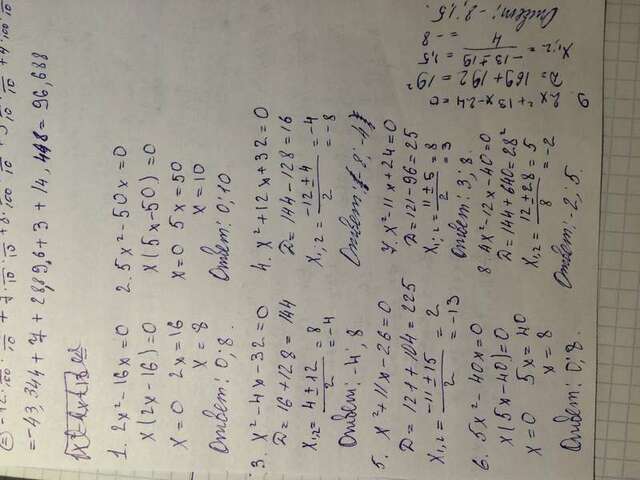 =-43,344+7+28,89,6+3+14,448=96,688
1. 2x²-16x=0
x(2x-16)=0
x=0 2x=16
x=8
Ответ: 0; 8.
2. 5x²-50x=0
x(5x-50)=0
x=0 5x=50
x=10
Ответ: 0; 10
3. x²-4x-32=0
D=16+128=144
x₁,₂=(4±12)/2 =8
=-4
Ответ: -4; 8
4. x²+12x+32=0
D=144-128=16
x₁;₂=(-12±4)/2 =-4
=-8
Ответ: -8; -4
5. x²+11x-26=0
D=121+104=225
x₁,₂=(-11±15)/2 =2
=-13
6. 5x²-40x=0
x(5x-40)=0
x=0 5x=40
x=8
Ответ: 0; 8.
7. x²-11x+24=0
D=121-96=25
x₁;₂=(11±5)/2 =8
=3
Ответ: 3; 8.
8. 4x²-12x-40=0
D=144+640=28²
x₁,₂=(12±28)/8 =5
=-2
Ответ: -2; 5.
9. 2x²+13x-24=0
D=169+192=19²
x₁;₂=(-13±19)/4 =1,5
=-8
Ответ: -8; 1,5.